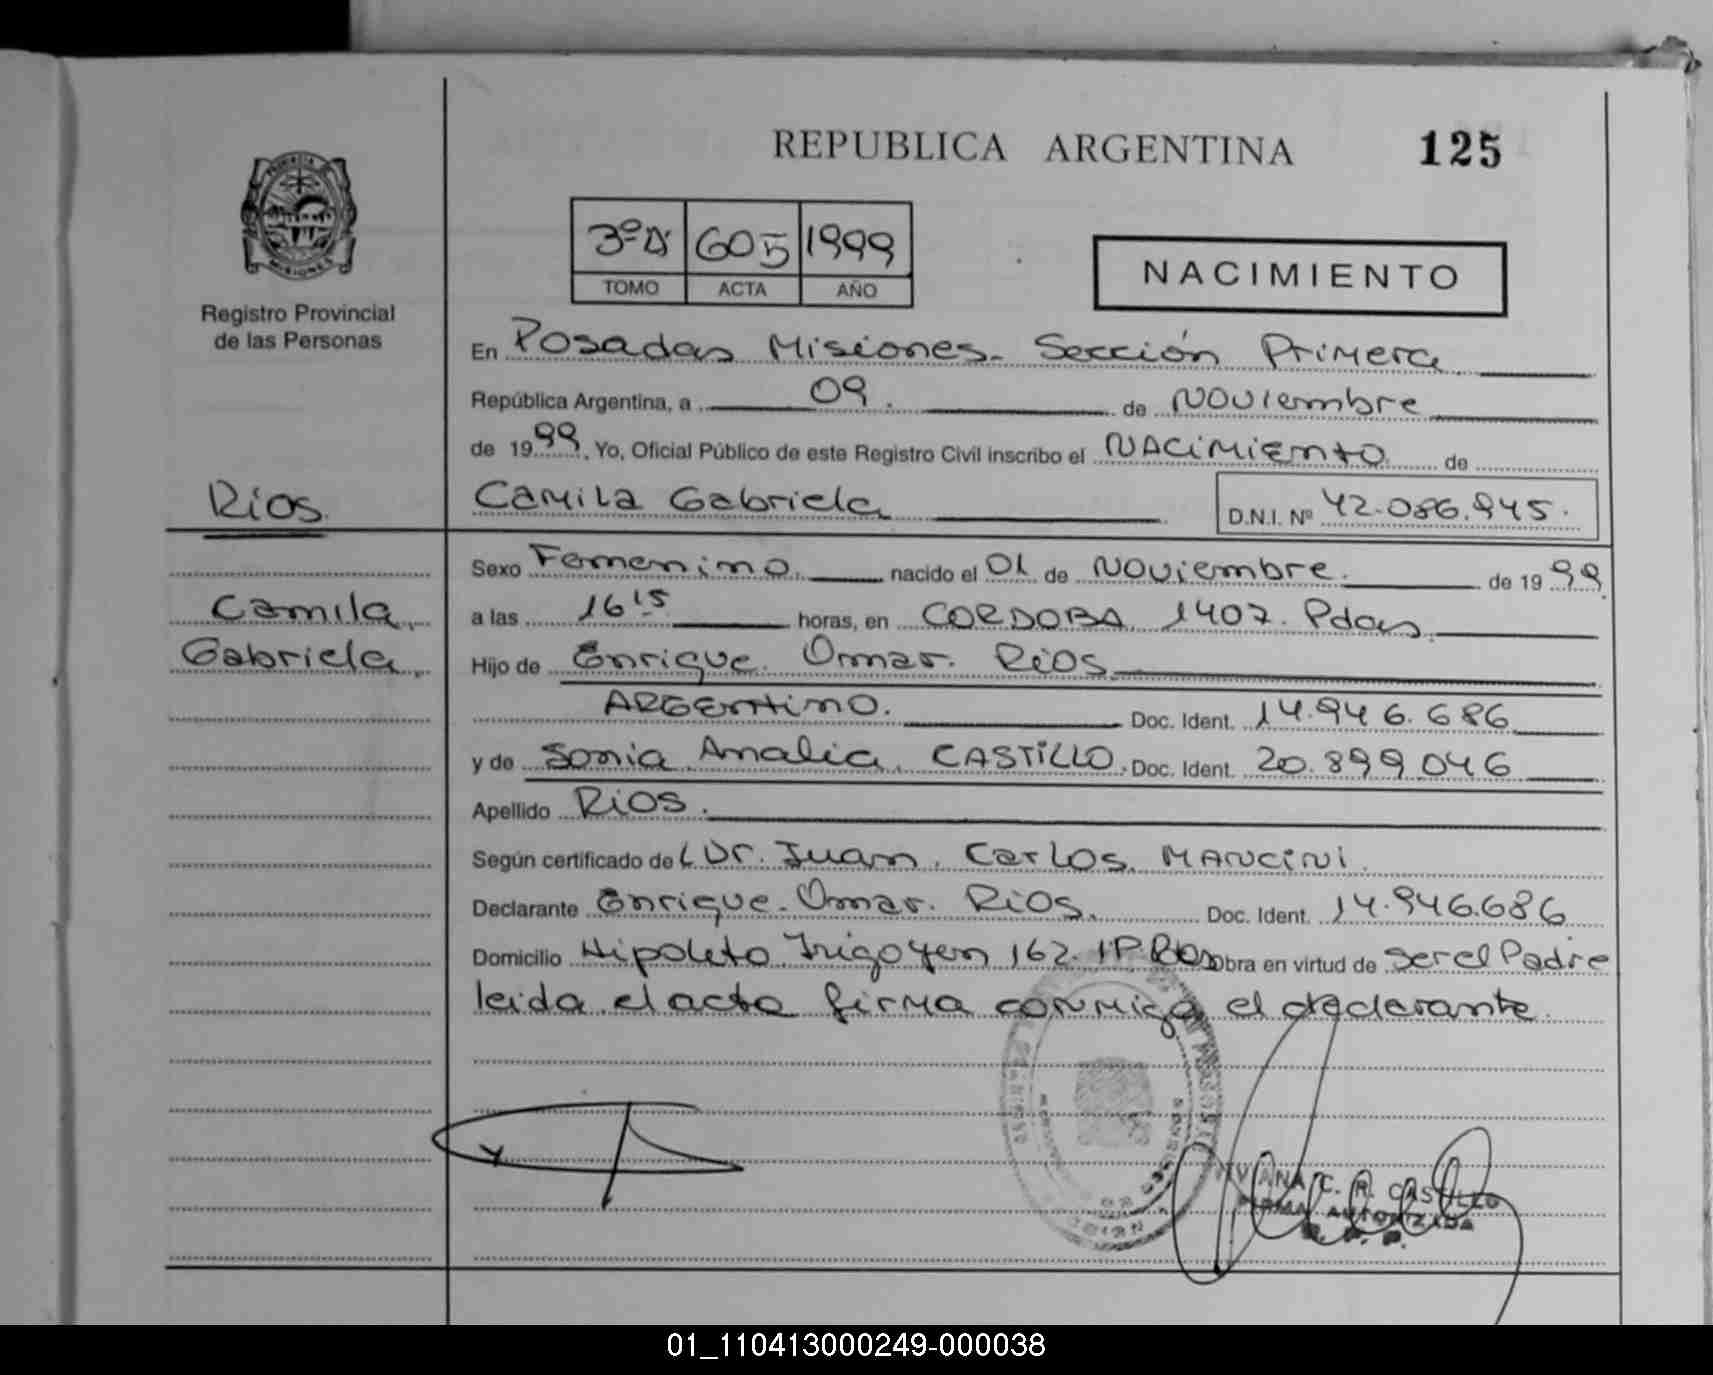 REPUBLICA ARGENTINA 125
3º D 605 1999
TOMO ACTA AÑO
NACIMIENTO
MISIONES
Registro Provincial
de las Personas
En Posadas Misiones. Sección Primera
República Argentina, a 09. de Noviembre
de 1999, Yo, Oficial Público de este Registro Civil inscribo el NACIMIENTO de
Rios. Camila Gabriela D.N.I. Nº 42.086.945.
Sexo Femenino. nacido el 01 de Noviembre. de 1999
Camila a las 16 15 horas, en CORDOBA 1407. Pdas.
Gabriela Hijo de Enrique Omar. Rios
ARGENTINO. Doc. Ident. 14.946.686
y de Sonia Analia CASTILLO. Doc. Ident. 20.899.046
Apellido Rios.
Según certificado del Dr. Juan Carlos MANCINI.
Declarante Enrique Omar. Rios. Doc. Ident. 14.946.686
Domicilio Hipolito Irigoyen 162. Obra en virtud de ser el Padre
leida el acta firma conmigo el declarante.
VIVIANA C. R. CASTILLO
FIRMA AUTORIZADA
R. P. P.
01_110413000249-000038